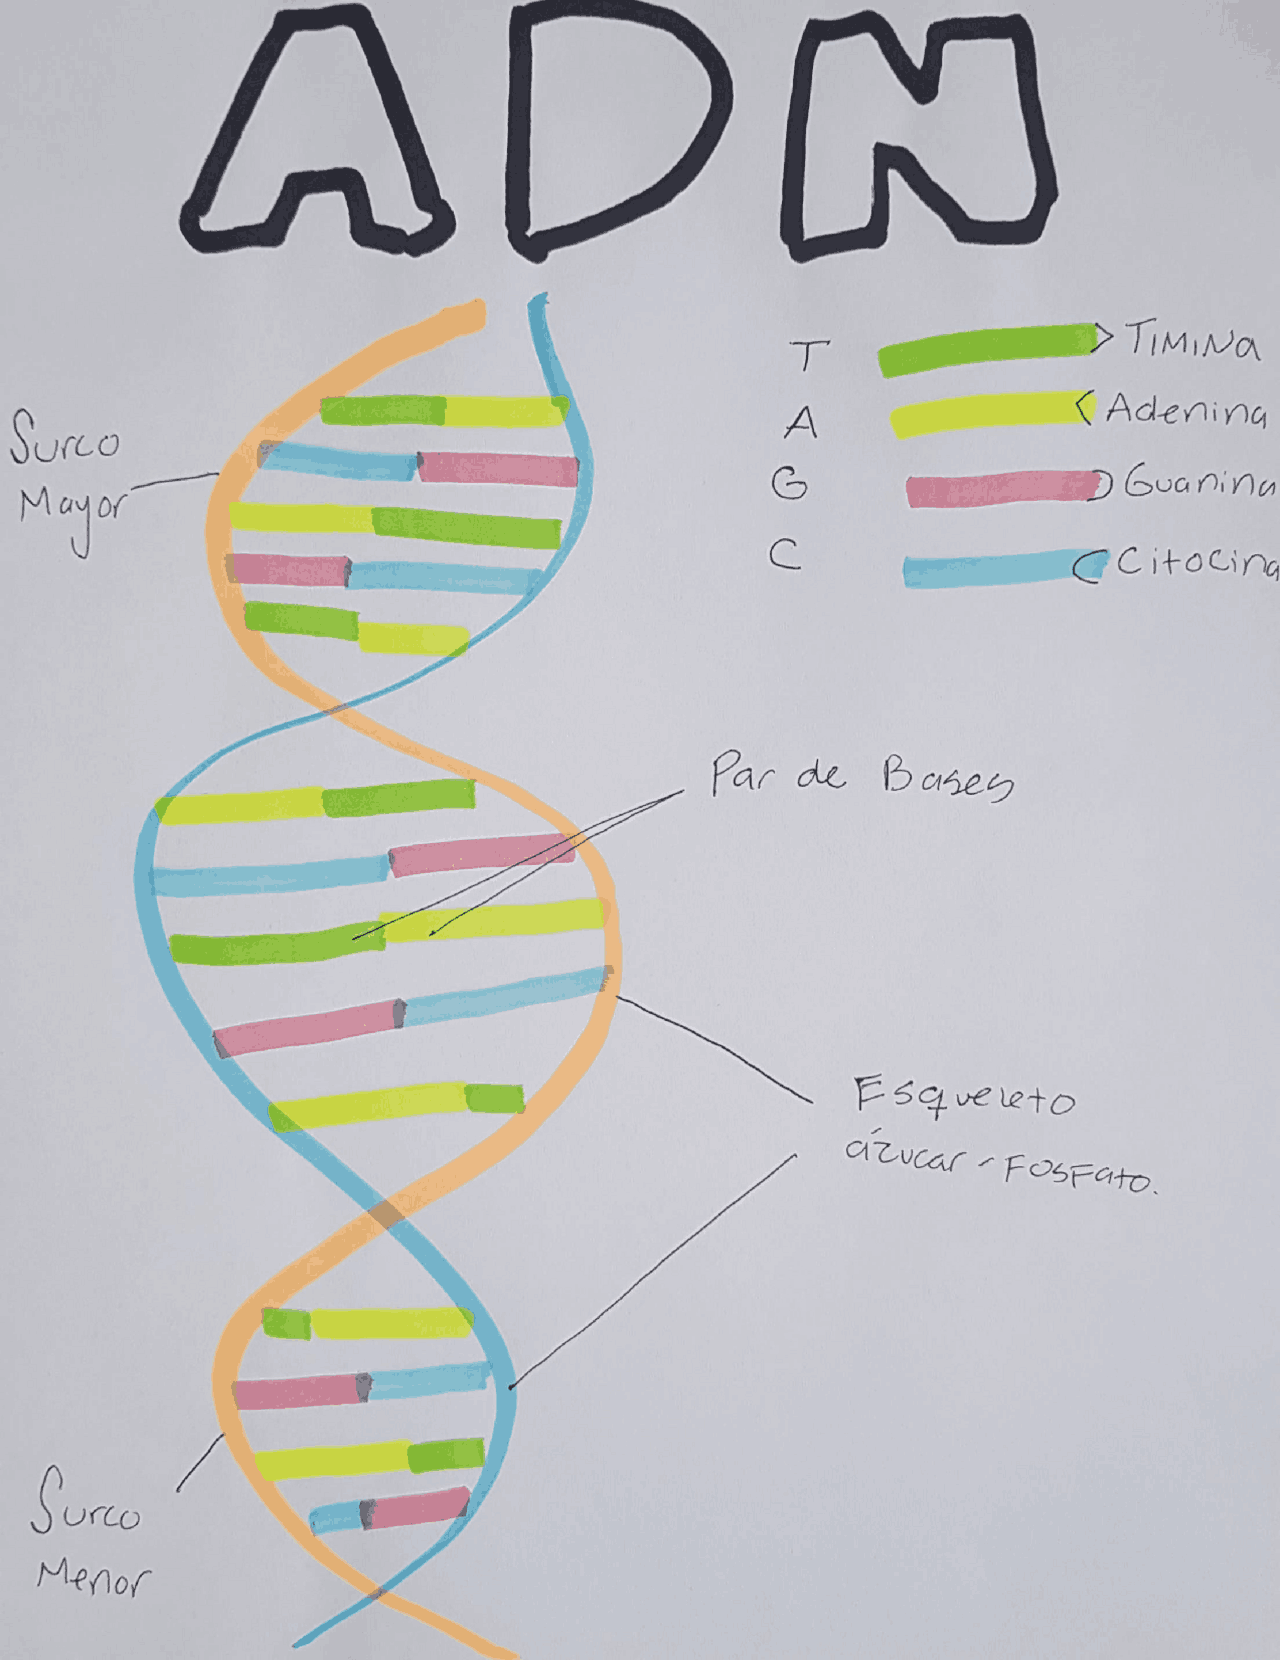 ADN
T TIMINA
A Adenina
G Guanina
C Citocina
Surco
Mayor
Par de Bases
Esqueleto
ázucar - FOSFato.
Surco
Menor